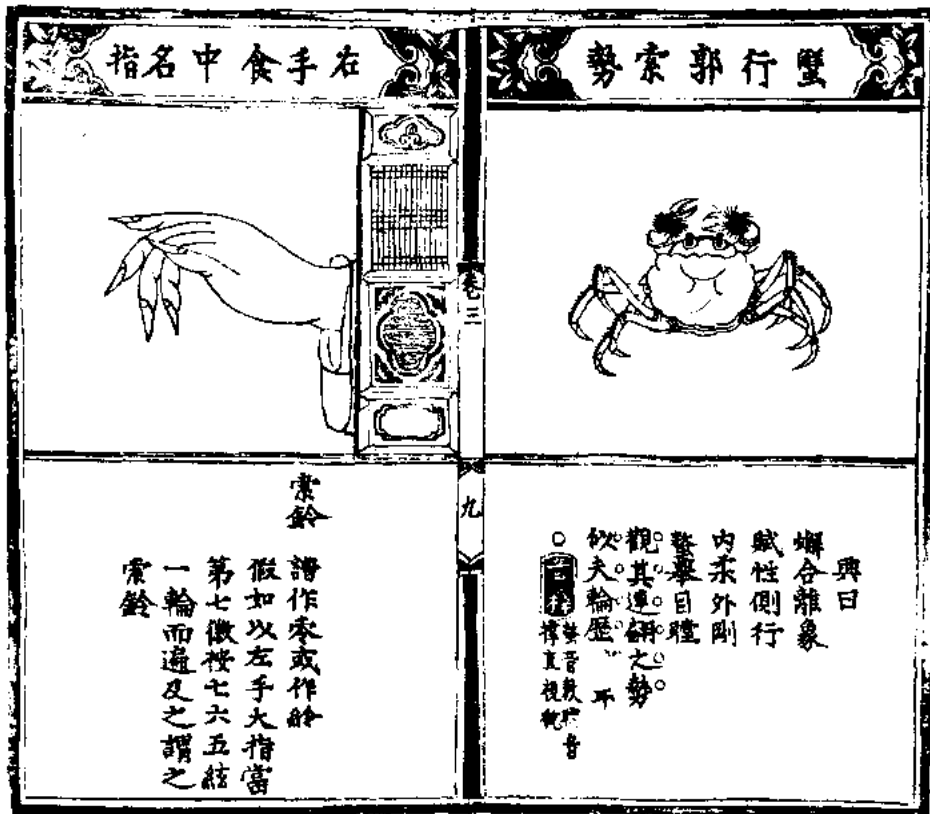 蟹行郭索勢
興曰
蠏合離象
賦性側行
內柔外剛
螯舉目瞠
觀其連翩之勢
似夫輪歷耳
音釋 螯音敖瞠音
直視貌
卷三
九
右手食中名指
索鈴
譜作或作
假如以左手大指當
第七徽按七六五絃
一輪而遍及之謂之
索鈴